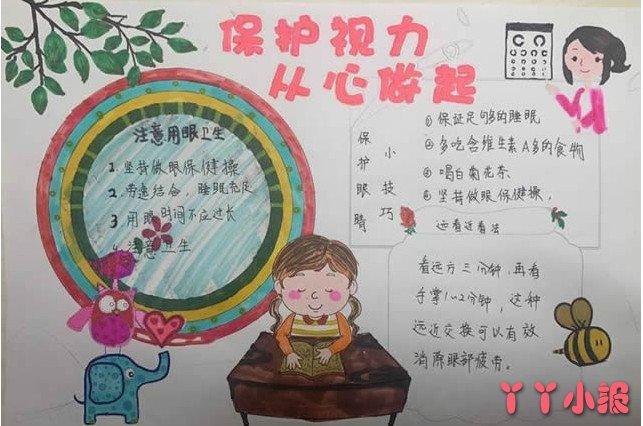 保护视力
从心做起
注意用眼卫生
1. 坚持做眼保健操
2. 劳逸结合，睡眠充足
3 用眼时间不应过长
4. 注意卫生
保护眼睛
小技巧
①保证足够多的睡眠
②多吃含维生素A多的食物
③喝白菊花茶
④坚持做眼保健操。
远看近看法
看远方三分钟，再看
手掌1~2分钟，这种
远近交换可以有效
消除眼部疲劳。
丫丫小报